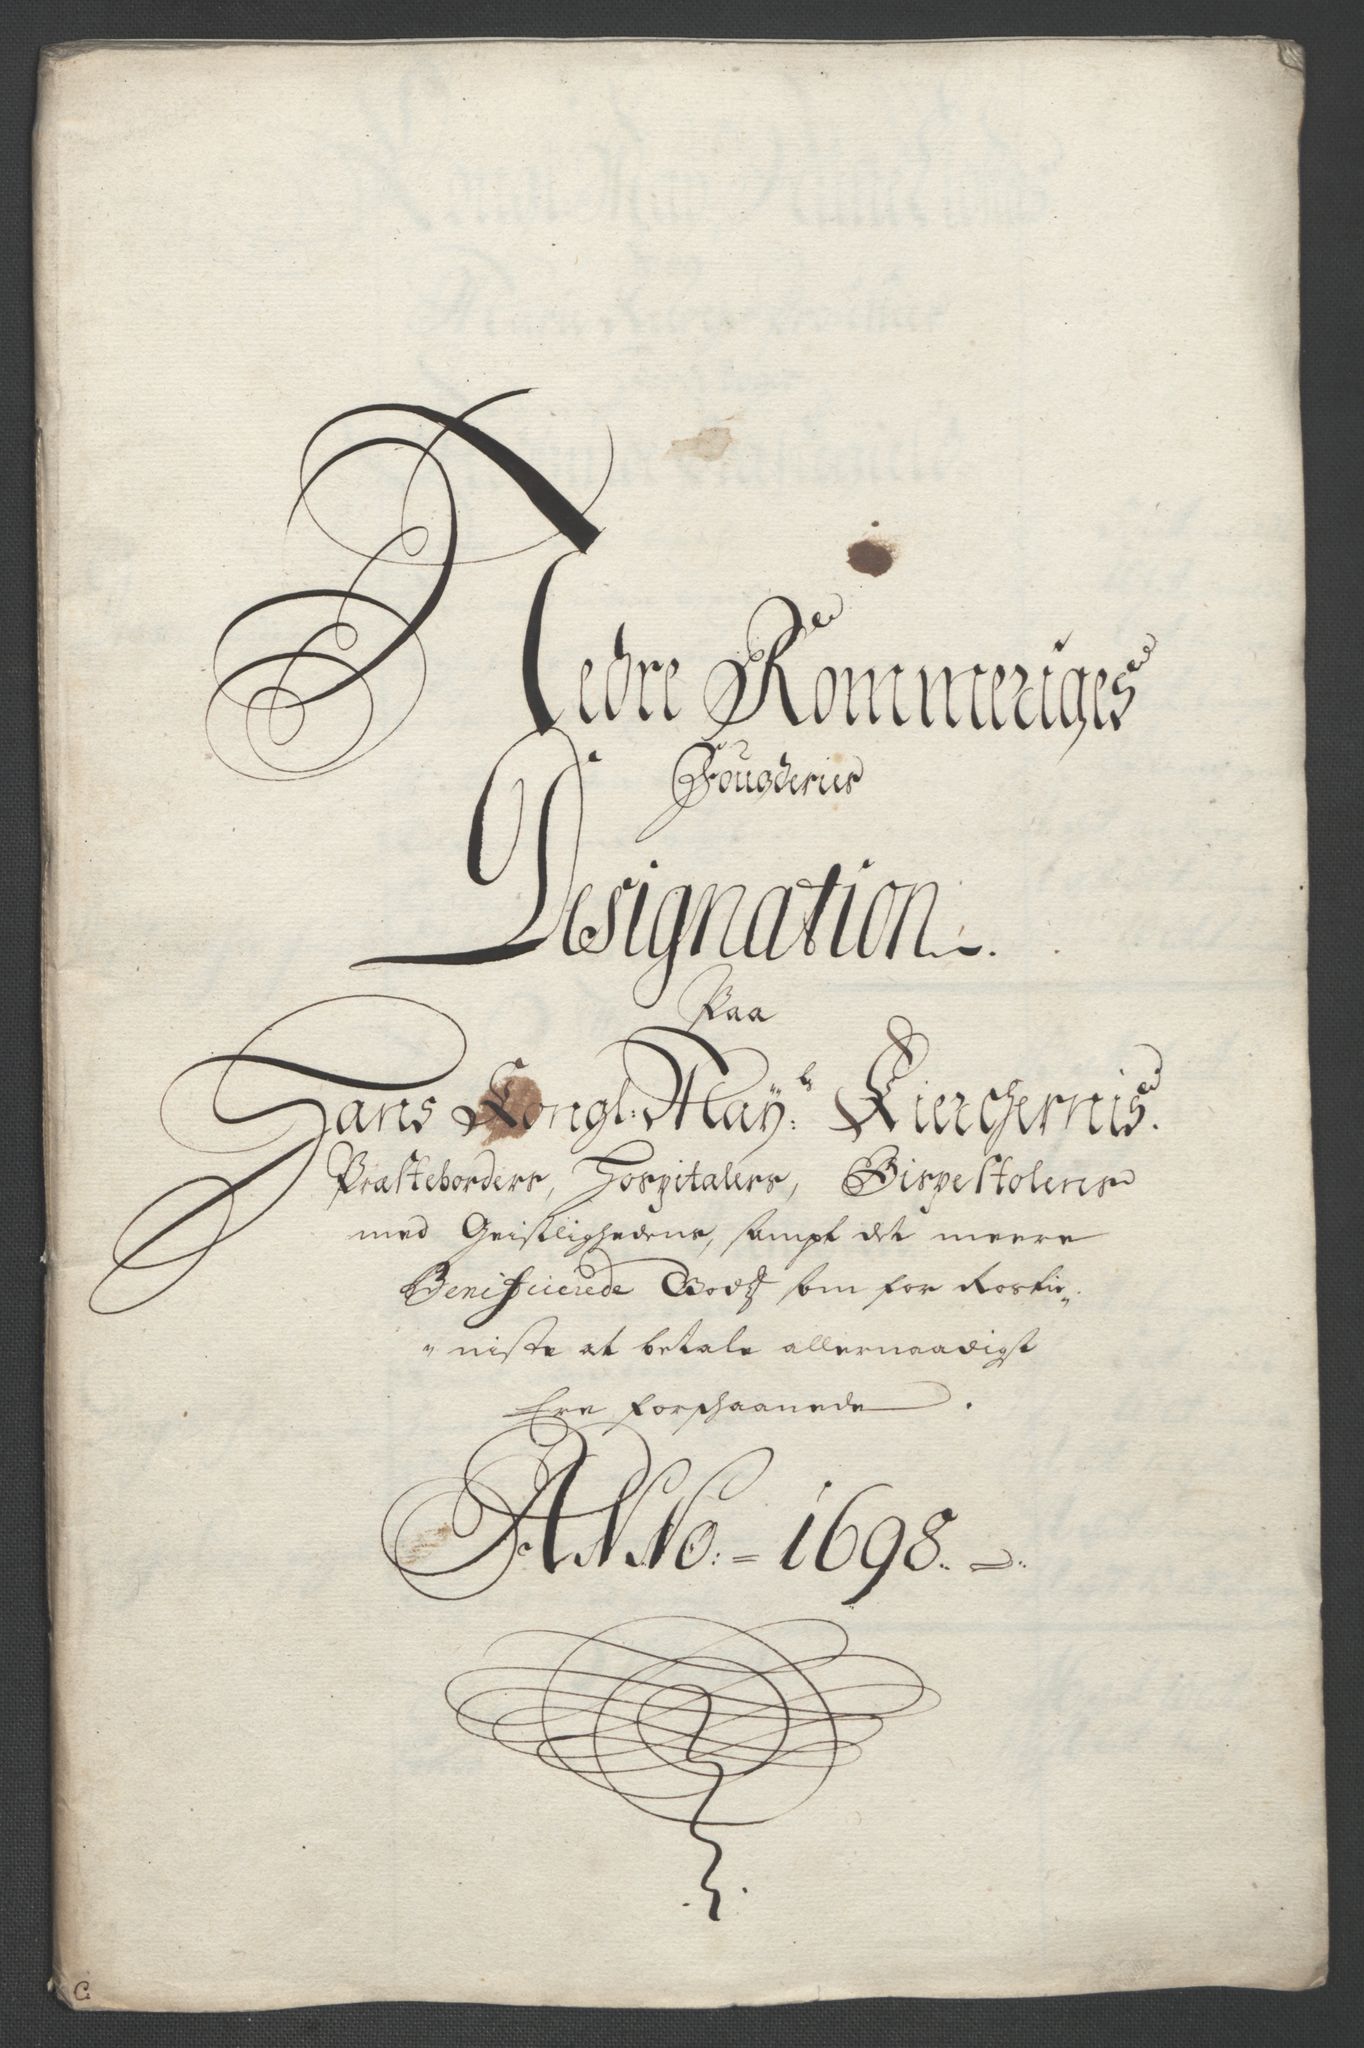 Nedre Rommeriges
Fougderies
Designation
Paa
Hans Kongl: May:ts Kierchernis.
Præsteborders, Hospitalers, Bispestolens
med Geistlighedens, sampt det meere
Benificierede Godz som for Rostie„
„niste at betale allernaadigst
Ere forschaanede.
ANNO:= 1698.
C